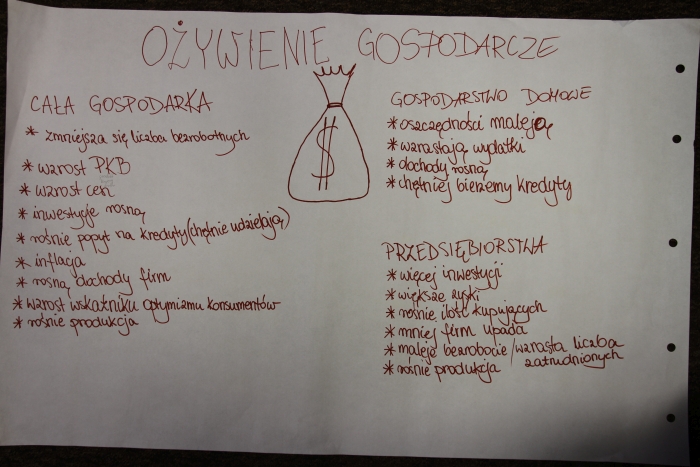 OŻYWIENIE GOSPODARCZE
CAŁA GOSPODARKA
* zmniejsza się liczba bezrobotnych
* wzrost PKB
* wzrost cen
* inwestycje rosną
* rośnie popyt na kredyty (chętnie udzielają)
* inflacja
* rosną dochody firm
* wzrost wskaźniku optymizmu konsumentów
* rośnie produkcja
$
GOSPODARSTWO DOMOWE
* oszczędności maleją
* wzrastają wydatki
* dochody rosną
* chętniej bierzemy kredyty
PRZEDSIĘBIORSTWA
* więcej inwestycji
* większe zyski
* rośnie ilość kupujących
* mniej firm upada
* maleje bezrobocie / wzrasta liczba
zatrudnionych
* rośnie produkcja